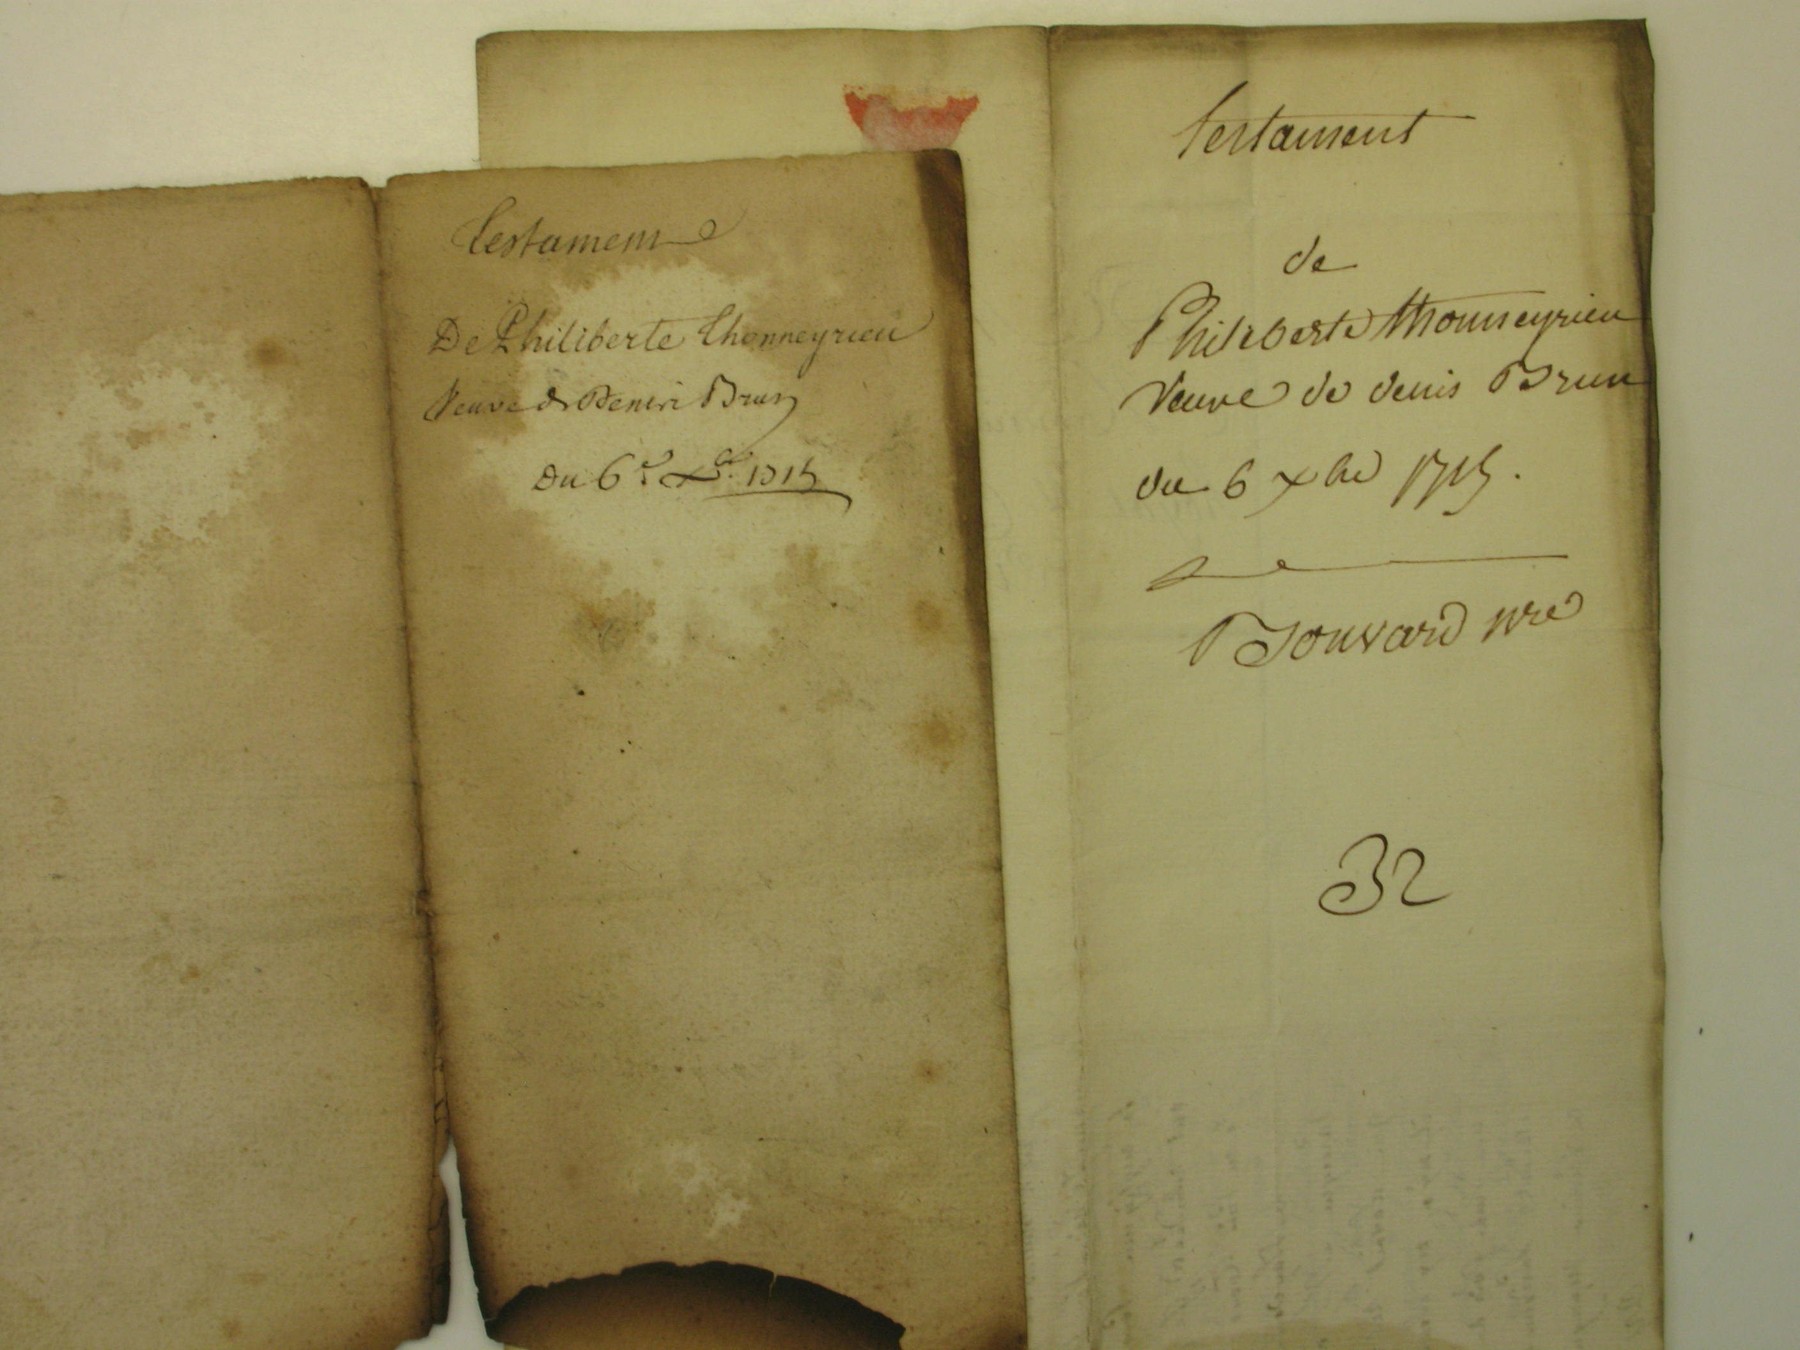 Testament
De Philiberte Thonneyrieu
Veuve de Denis Brun
du 6e xbre 1715
Testament
de
Philiberte thonneyrieu
Veuve de denis Brun
du 6 xbre 1715.
Bouvard nre
32